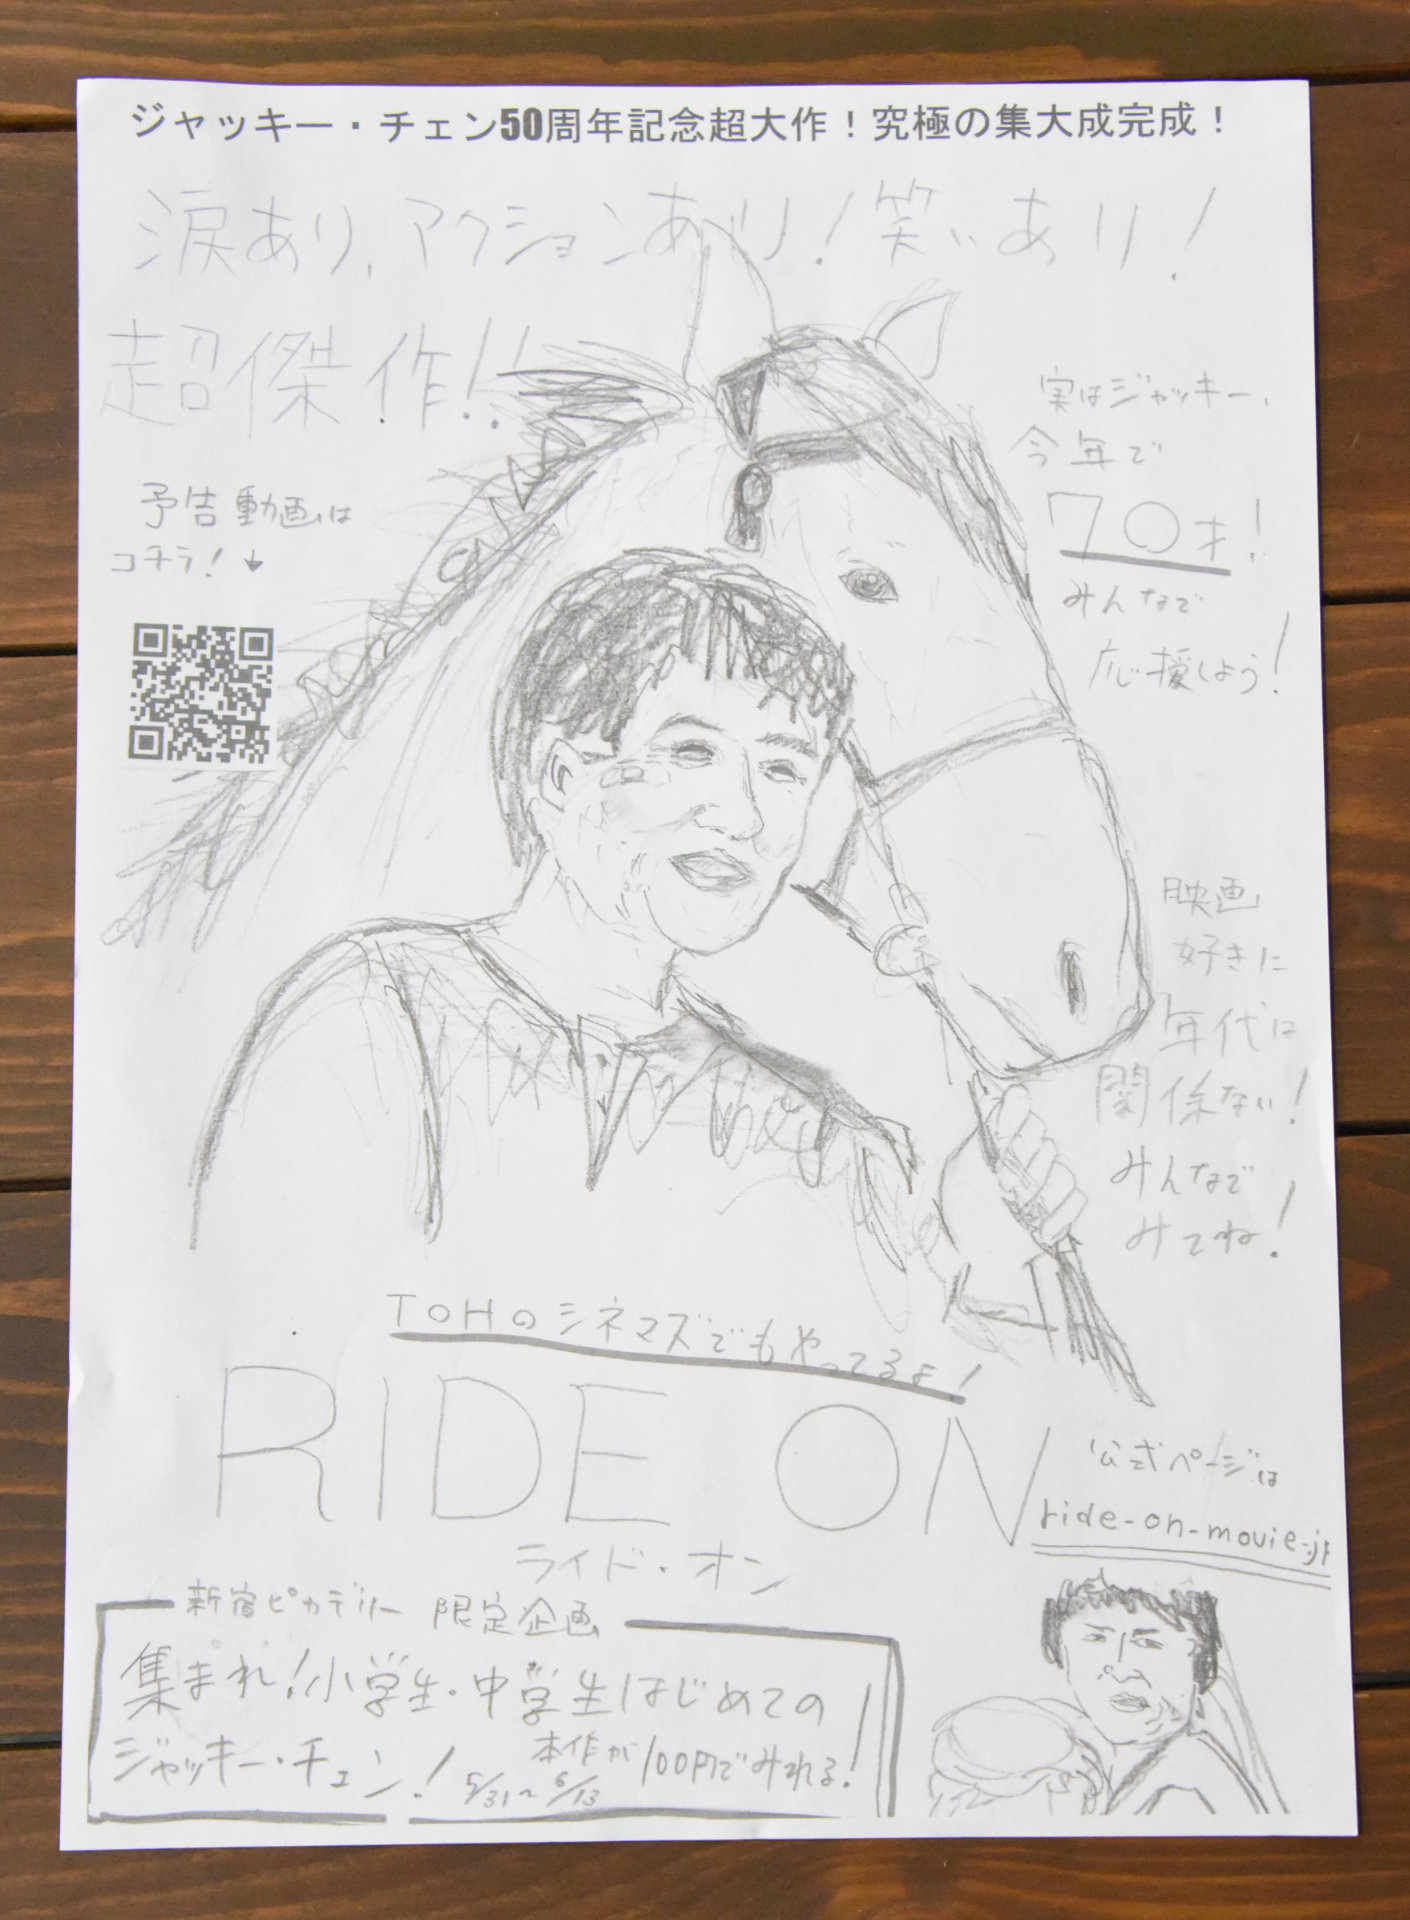 ジャッキー・チェン50周年記念超大作！究極の集大成完成！
涙あり、アクションあり！笑いあり！
超傑作！！
予告動画は
コチラ！↓
実はジャッキー、
今年で
70才！
みんなで
応援しよう！
映画
好きに
年代は
関係ない！
みんなで
みてね！
TOHのシネマズでもやってるよ！
RIDE ON
ライド・オン
公式ページは
ride-on-movie.jp
新宿ピカデリー 限定企画
集まれ！小学生・中学生はじめての
ジャッキー・チェン！ 5/31〜6/13 本作が100円でみれる！